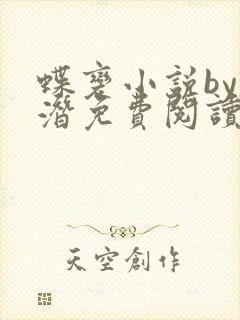 蝶裔小説by
潛免費閱讀
天空創作